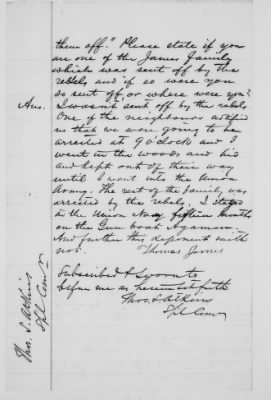 them off." Please state if you
are one of the James family
which was sent off by the
rebels and if so were you
so sent off or where were you?
Ans. I wasn't sent off by the rebels
One of the neighbours notified
us that we were going to be
arrested at 9 o'clock and I
went in the woods and hid
and kept out of their way
until I went into the Union
Army. The rest of the family was
arrested by the rebels. I stayed
in the Union Navy fifteen months
on the Gun boat Agawam.
And further this deponent saith
not. Thomas James
Subscribed & sworn to
before me as herein set forth
Thos. S. Atkins
Spl Comr
Thos. S. Atkins
Spl. Com'r